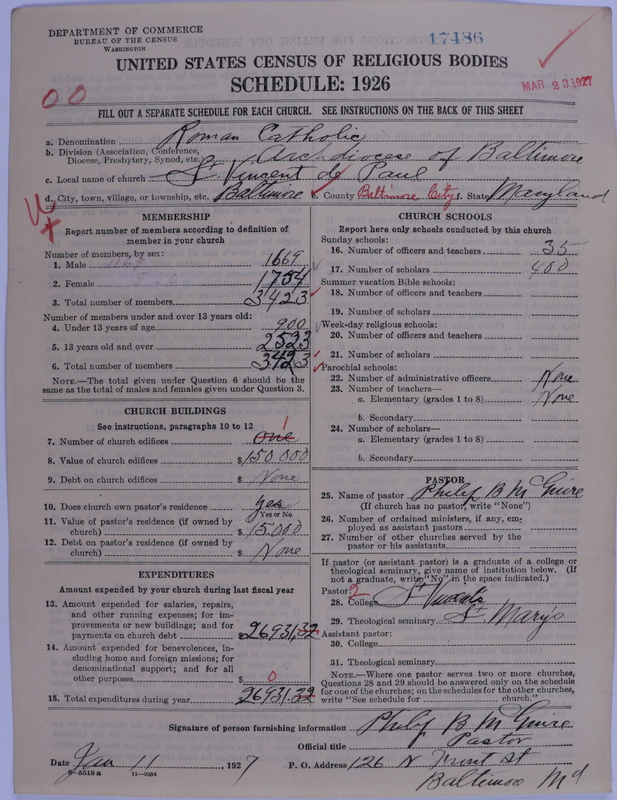 DEPARTMENT OF COMMERCE
BUREAU OF THE CENSUS
WASHINGTON
17486
UNITED STATES CENSUS OF RELIGIOUS BODIES
SCHEDULE: 1926
MAR 23 1927
00
FILL OUT A SEPARATE SCHEDULE FOR EACH CHURCH. SEE INSTRUCTIONS ON THE BACK OF THIS SHEET
a. Denomination Roman Catholic
b. Division (Association, Conference, Diocese, Presbytery, Synod, etc. Archdiocese of Baltimore
c. Local name of church St Vincent de Paul
d. City, town, village, or township, etc. Baltimore e. County Baltimore City f. State Maryland
MEMBERSHIP
Report number of members according to definition of
member in your church
Number of members, by sex:
1. Male 1669
2. Female 1754
3. Total number of members 3423
Number of members under and over 13 years old:
4. Under 13 years of age 900
5. 13 years old and over 2523
6. Total number of members 3423
NOTE.—The total given under Question 6 should be the
same as the total of males and females given under Question 3.
CHURCH BUILDINGS
See instructions, paragraphs 10 to 12
7. Number of church edifices one 1
8. Value of church edifices $150 000
9. Debt on church edifices $ None
10. Does church own pastor's residence yes
Yes or No
11. Value of pastor's residence (if owned by
church) $ 15000
12. Debt on pastor's residence (if owned by
church) $ None
EXPENDITURES
Amount expended by your church during last fiscal year
13. Amount expended for salaries, repairs,
and other running expenses; for im-
provements or new buildings; and for
payments on church debt $26931.32
14. Amount expended for benevolences, in-
cluding home and foreign missions; for
denominational support; and for all
other purposes $ 0
15. Total expenditures during year $26931.32
CHURCH SCHOOLS
Report here only schools conducted by this church
Sunday schools:
16. Number of officers and teachers 35
17. Number of scholars 400
Summer vacation Bible schools:
18. Number of officers and teachers
19. Number of scholars
Week-day religious schools:
20. Number of officers and teachers
21. Number of scholars
Parochial schools:
22. Number of administrative officers None
23. Number of teachers—
a. Elementary (grades 1 to 8) None
b. Secondary
24. Number of scholars—
a. Elementary (grades 1 to 8)
b. Secondary
PASTOR
25. Name of pastor Philip B McGuire
(If church has no pastor, write "None")
26. Number of ordained ministers, if any, em-
ployed as assistant pastors
27. Number of other churches served by the
pastor or his assistants
If pastor (or assistant pastor) is a graduate of a college or
theological seminary, give name of institution below. (If
not a graduate, write "No" in the space indicated.)
Pastor: 2
28. College St Vincents
29. Theological seminary St Mary's
Assistant pastor:
30. College
31. Theological seminary
NOTE.—Where one pastor serves two or more churches,
Questions 28 and 29 should be answered only on the schedule
for one of the churches; on the schedules for the other churches,
write "See schedule for church."
Signature of person furnishing information Philip B McGuire
Official title Pastor
Date Jan 11, 1927 P. O. Address 126 N Front St
8—5518 a 11—9354 Baltimore Md